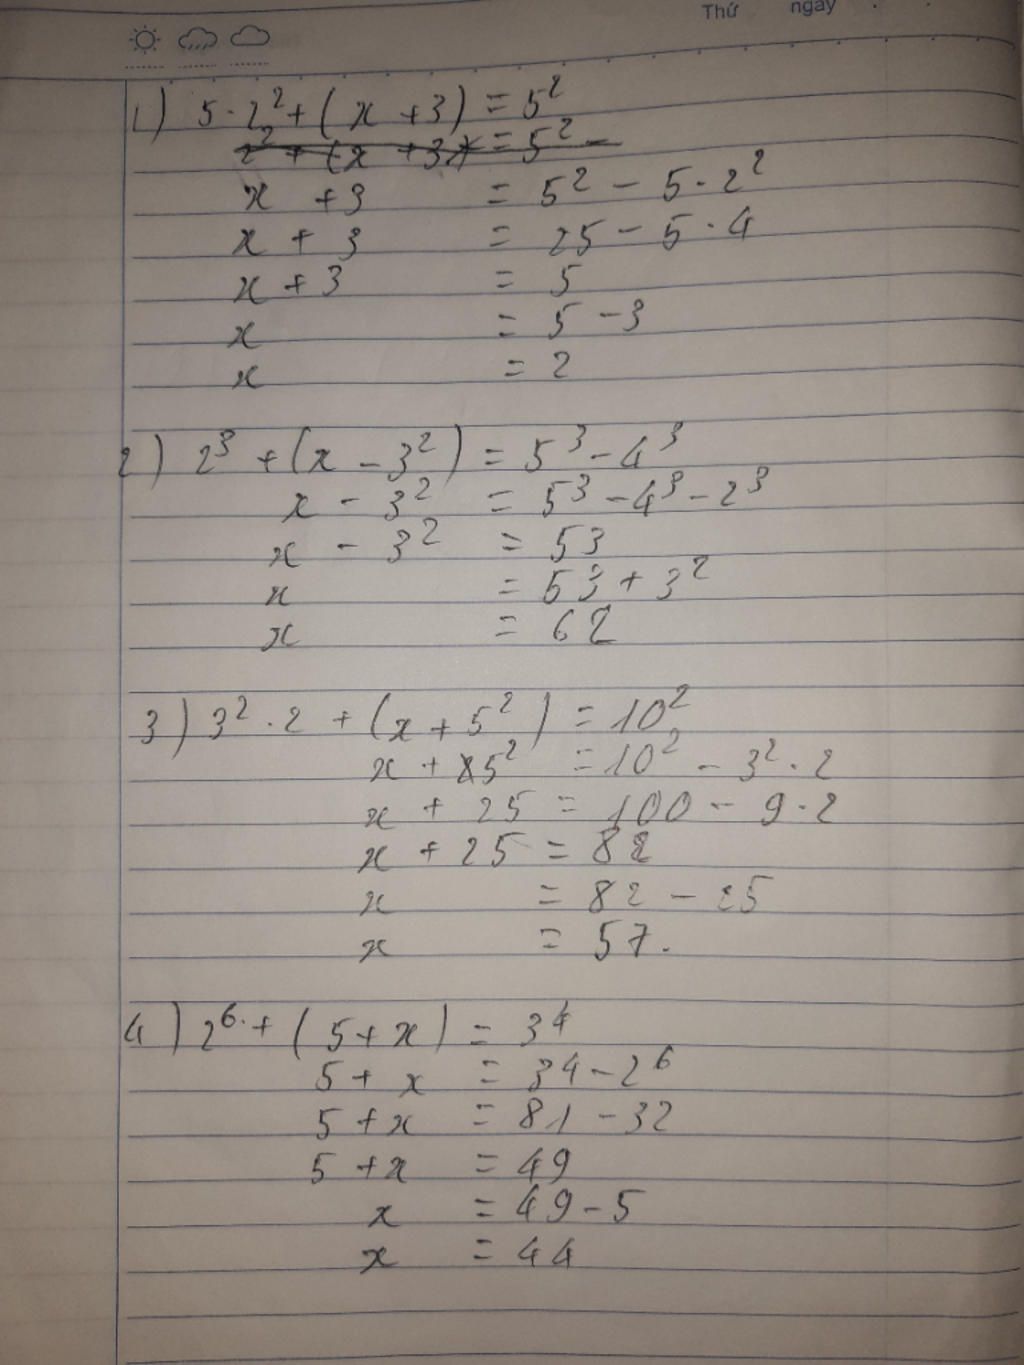 Thứ ngày
1) 5·2² + (x + 3) = 5²
2² + (x + 3) = 5² –
x + 3 = 5² – 5·2²
x + 3 = 25 – 5·4
x + 3 = 5
x = 5 – 3
x = 2
2) 2³ + (x – 3²) = 5³ – 4³
x – 3² = 5³ – 4³ – 2³
x – 3² = 53
x = 53 + 3²
x = 62
3) 3²·2 + (x + 5²) = 10²
x + 5² = 10² – 3²·2
x + 25 = 100 – 9·2
x + 25 = 82
x = 82 – 25
x = 57.
4) 2⁶ + (5 + x) = 3⁴
5 + x = 3⁴ – 2⁶
5 + x = 81 – 32
5 + x = 49
x = 49 – 5
x = 44